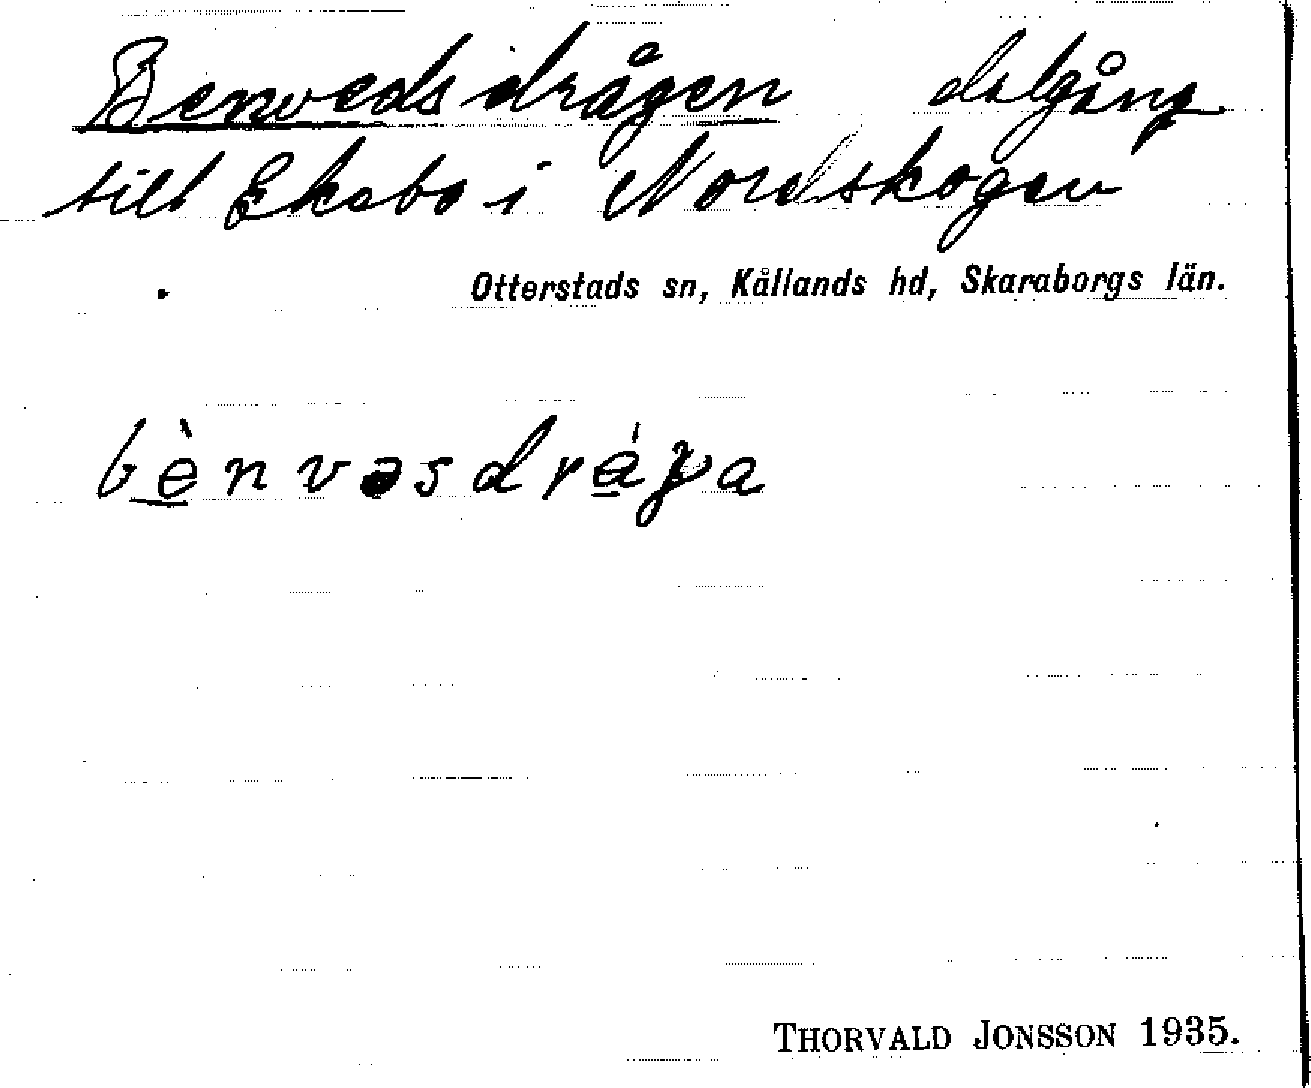 Benvedsdrågen dalgång
till Ekebo i Nordskogen
Otterstads sn, Kållands hd, Skaraborgs län.
bènvəsdráɣa
THORVALD JONSSON 1935.